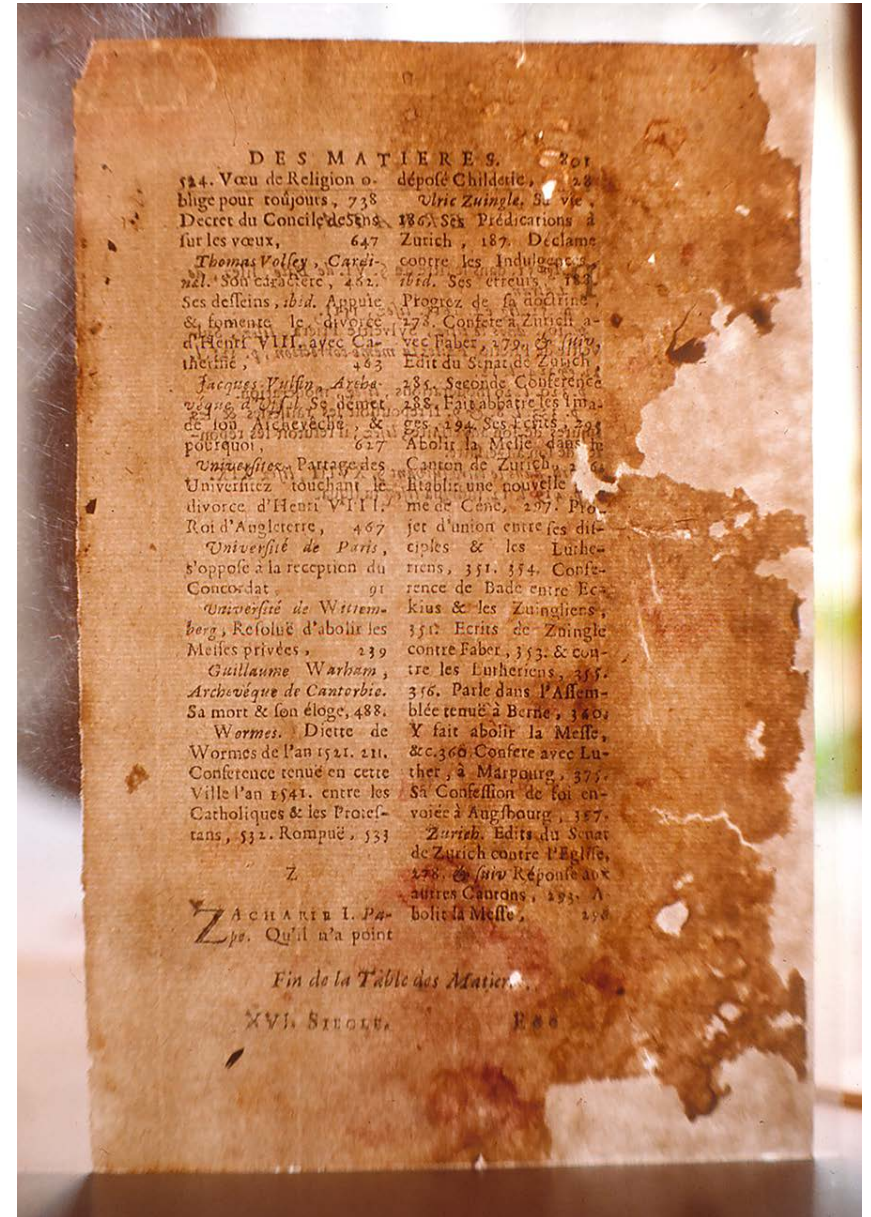 DES MATIERES. 801
524. Vœu de Religion o-
blige pour toûjours, 738
Decret du Concile de Sens
sur les vœux, 647
Thomas Volsey, Cardi-
nal. Son caractère, 462.
Ses desseins, ibid. Appuie
& fomente le divorce
d'Henri VIII. avec Ca-
therine, 463
Jacques Vulfin, Arche-
vêque d'Upsal. Se démet
de son Archevêché, &
pourquoi, 627
Universitez. Partage des
Universitez touchant le
divorce d'Henri VIII.
Roi d'Angleterre, 467
Université de Paris,
s'oppose à la reception du
Concordat, 91
Université de Wittem-
berg, Resoluë d'abolir les
Messes privées, 239
Guillaume Warham,
Archevéque de Cantorbie.
Sa mort & son éloge, 488.
Wormes. Diette de
Wormes de l'an 1521. 211.
Conference tenuë en cette
Ville l'an 1541. entre les
Catholiques & les Protes-
tans, 532. Rompuë, 533
Z
ZACHARIE I. Pa-
pe. Qu'il n'a point
déposé Childeric, 28
Ulric Zuingle. Sa vie,
186. Ses Prédications à
Zurich, 187. Déclame
contre les Indulgences,
ibid. Ses erreurs, 188.
Progrez de sa doctrine,
278. Confere à Zurich a-
vec Faber, 279. & suiv.
Edit du Senat de Zurich,
285. Seconde Conférence
288. Fait abbatre les Ima-
ges, 294. Ses Ecrits, 295
Abolit la Messe dans le
Canton de Zurich,
Etablit une nouvelle
me de Céne, 297. Pro-
jet d'union entre ses dis-
ciples & les Luthe-
riens, 351. 354. Confe-
rence de Bade entre Ec-
kius & les Zuingliens,
351. Ecrits de Zuingle
contre Faber, 353. & con-
tre les Lutheriens, 355.
356. Parle dans l'Assem-
blée tenuë à Berne, 360.
Y fait abolir la Messe,
&c. 360. Confere avec Lu-
ther, à Marpourg, 375.
Sa Confession de foi en-
voiée à Augsbourg, 357.
Zurich. Edits du Senat
de Zurich contre l'Eglise,
278. & suiv Réponse aux
autres Cantons, 293. A-
bolit la Messe, 296
Fin de la Table des Matier
XVI. SIECLE. Eee